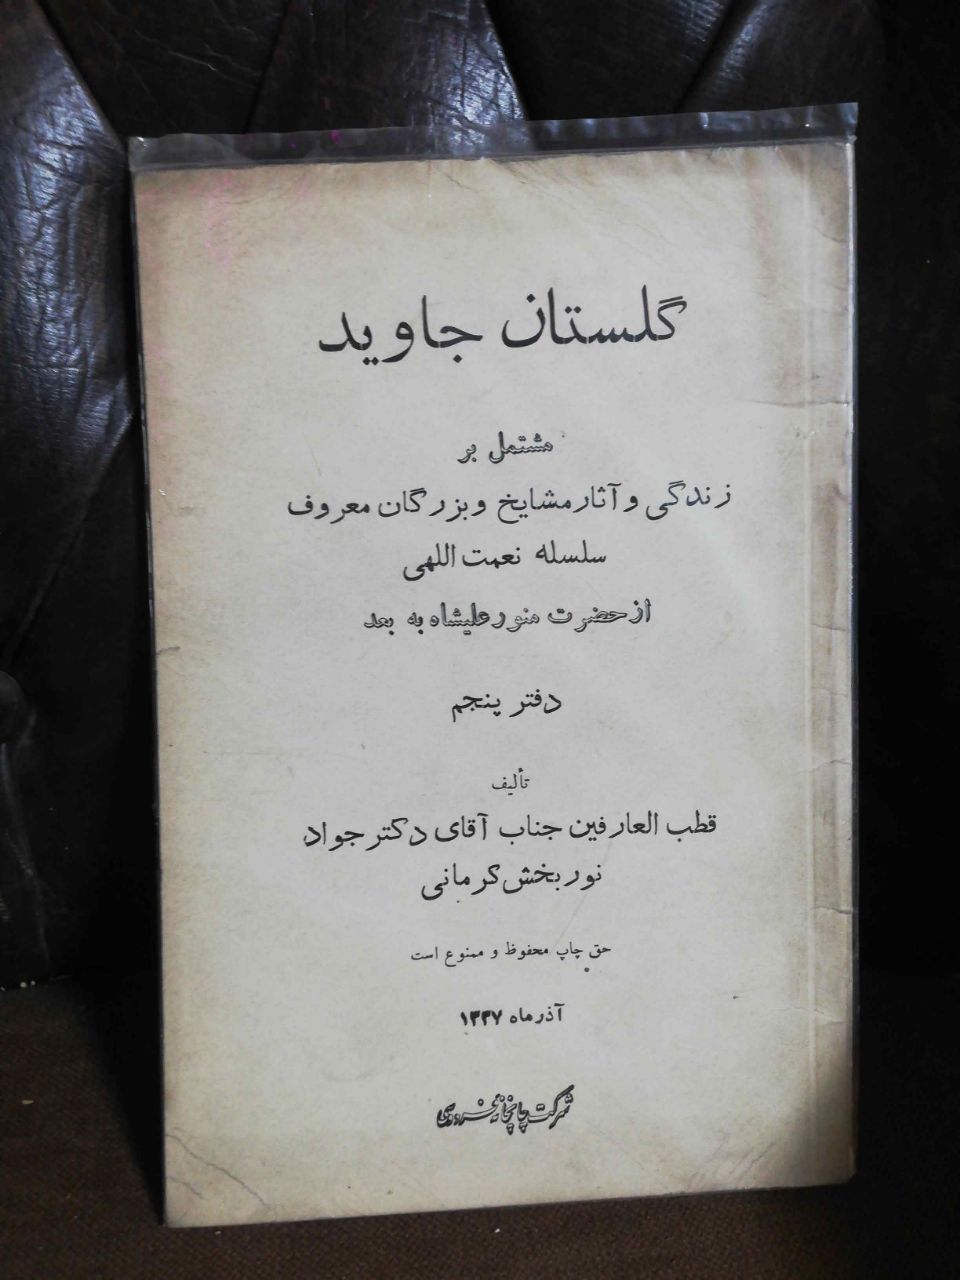 گلستان جاوید
مشتمل بر
زندگی و آثار مشایخ و بزرگان معروف
سلسله نعمت اللهی
از حضرت منور علیشاه به بعد
دفتر پنجم
تألیف
قطب العارفین جناب آقای دکتر جواد
نوربخش کرمانی
حق چاپ محفوظ و ممنوع است
آذر ماه ۱۳۳۷
شرکت چاپخانه فردوسی